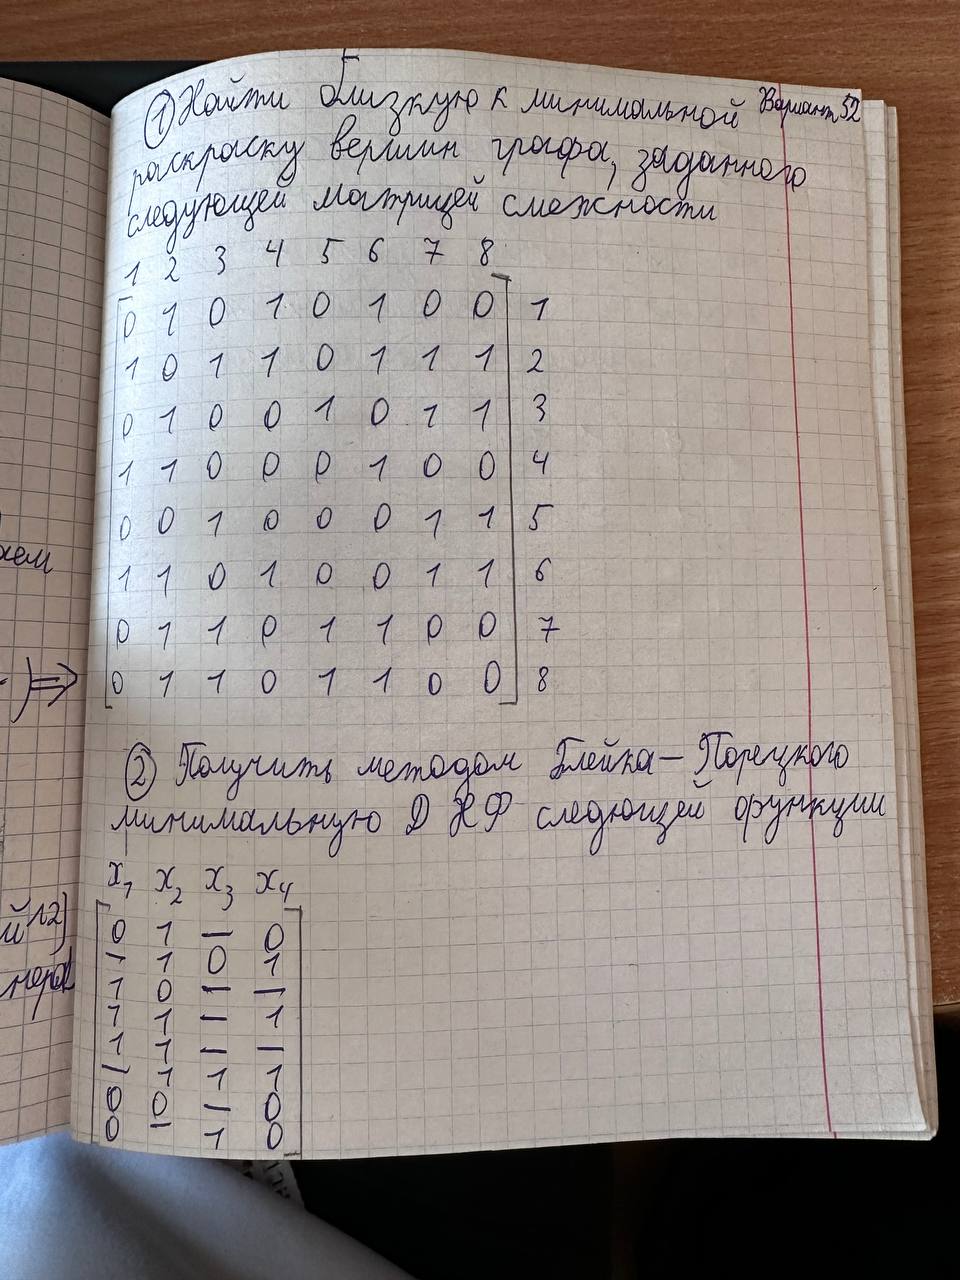 ① Найти близкую к минимальной Вариант 52
раскраску вершин графа, заданного
следующей матрицей смежности
1 2 3 4 5 6 7 8
0 1 0 1 0 1 0 0 1
1 0 1 1 0 1 1 1 2
0 1 0 0 1 0 1 1 3
1 1 0 0 0 1 0 0 4
0 0 1 0 0 0 1 1 5
1 1 0 1 0 0 1 1 6
0 1 1 0 1 1 0 0 7
0 1 1 0 1 1 0 0 8
② Получить методом Блейка — Порецкого
минимальную ДНФ следующей функции
x₁ x₂ x₃ x₄
0 1 — 0
— 1 0 1
1 0 — —
1 1 — 1
1 1 — —
— 1 1 1
0 0 — 0
0 — 1 0